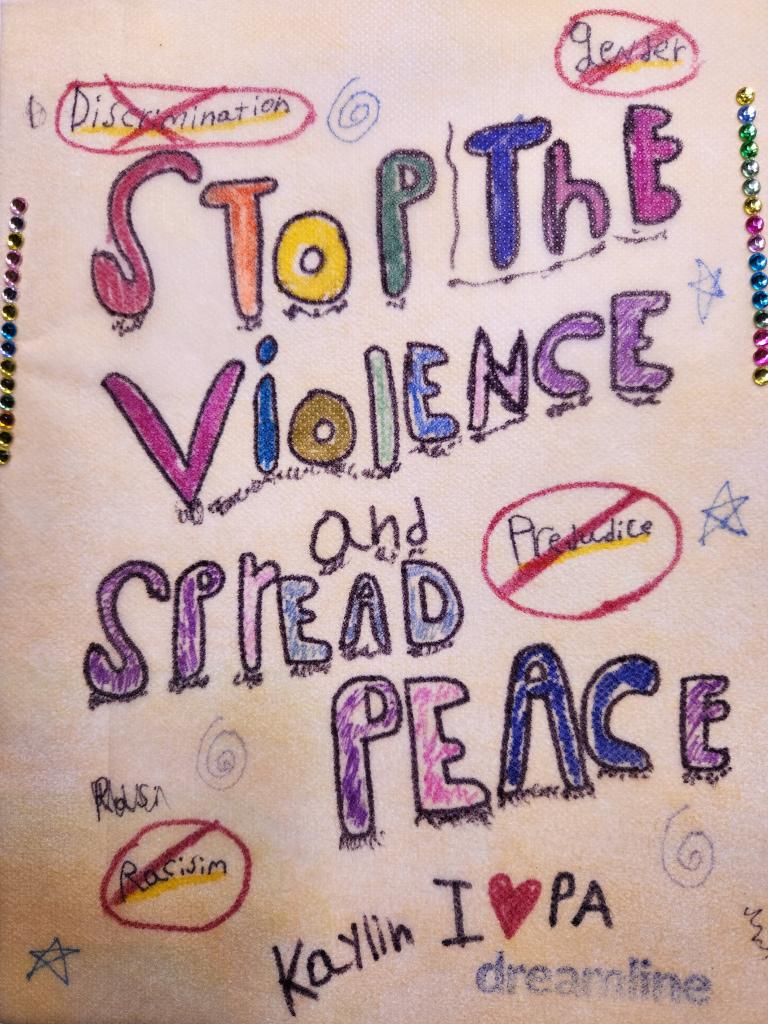 gender
Discrimination
STOP ThE
ViOlENCE
and
Prejudice
SPrEAD
PEACE
Racisim
I ♥ PA
Kaylin
dreamline